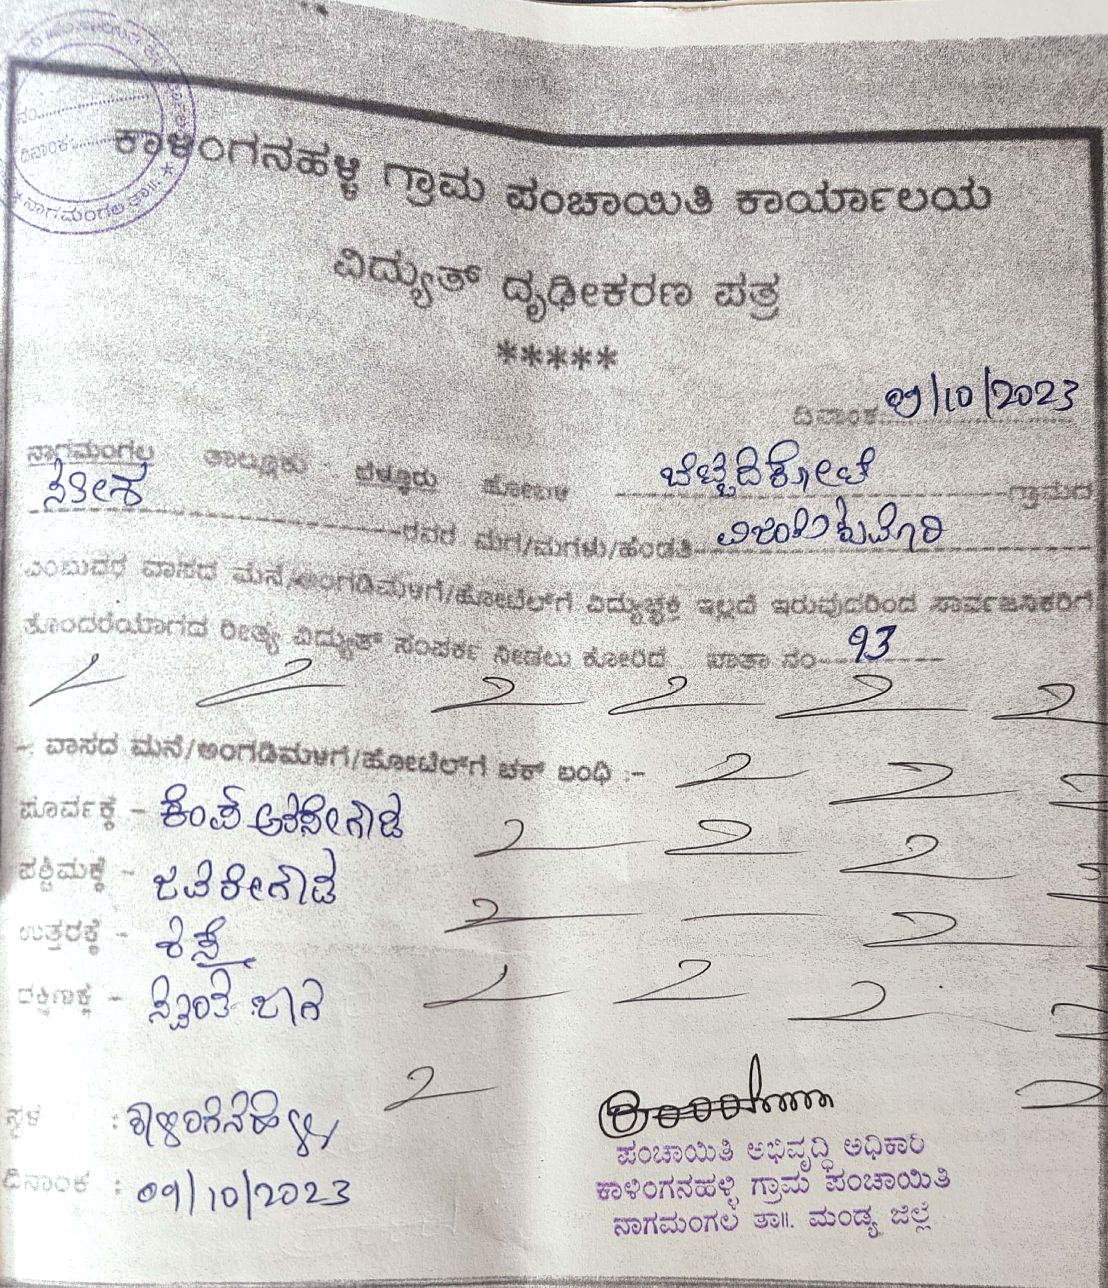 ನಂ
ದಿನಾಂಕ:
ನಾಗಮಂಗಲ ತಾ||.
ಕಾಳಿಂಗನಹಳ್ಳಿ ಗ್ರಾಮ ಪಂಚಾಯಿತಿ ಕಾರ್ಯಾಲಯ
ವಿದ್ಯುತ್ ದೃಢೀಕರಣ ಪತ್ರ
*****
ದಿನಾಂಕ 09/10/2023
ನಾಗಮಂಗಲ ತಾಲ್ಲೂಕು ಬೆಳ್ಳೂರು ಹೋಬಳಿ ಗ್ರಾಮದ
ಸತೀಶ ರವರ ಮಗ/ಮಗಳು/ಹೆಂಡತಿ
ಎಂಬುವರ ವಾಸದ ಮನೆ/ಅಂಗಡಿಮಳಿಗೆ/ಹೋಟೆಲ್‌ಗೆ ವಿದ್ಯುಚ್ಛಕ್ತಿ ಇಲ್ಲದೆ ಇರುವುದರಿಂದ ಸಾರ್ವಜನಿಕರಿಗೆ
ತೊಂದರೆಯಾಗದ ರೀತ್ಯ ವಿದ್ಯುತ್ ಸಂಪರ್ಕ ನೀಡಲು ಕೋರಿದೆ ಖಾತಾ ನಂ 93
- ವಾಸದ ಮನೆ/ಅಂಗಡಿಮಳಿಗೆ/ಹೋಟೆಲ್‌ಗೆ ಚಕ್ ಬಂಧಿ :-
ಪೂರ್ವಕ್ಕೆ -
ಪಶ್ಚಿಮಕ್ಕೆ - ಜವರೇಗೌಡ
ಉತ್ತರಕ್ಕೆ - ರಸ್ತೆ
ದಕ್ಷಿಣಕ್ಕೆ - ಸ್ವಂತ ಜಾಗ
ಸ್ಥಳ : ಕಾಳಿಂಗನಹಳ್ಳಿ
ದಿನಾಂಕ : 09/10/2023
ಪಂಚಾಯಿತಿ ಅಭಿವೃದ್ಧಿ ಅಧಿಕಾರಿ
ಕಾಳಿಂಗನಹಳ್ಳಿ ಗ್ರಾಮ ಪಂಚಾಯಿತಿ
ನಾಗಮಂಗಲ ತಾ||. ಮಂಡ್ಯ ಜಿಲ್ಲೆ